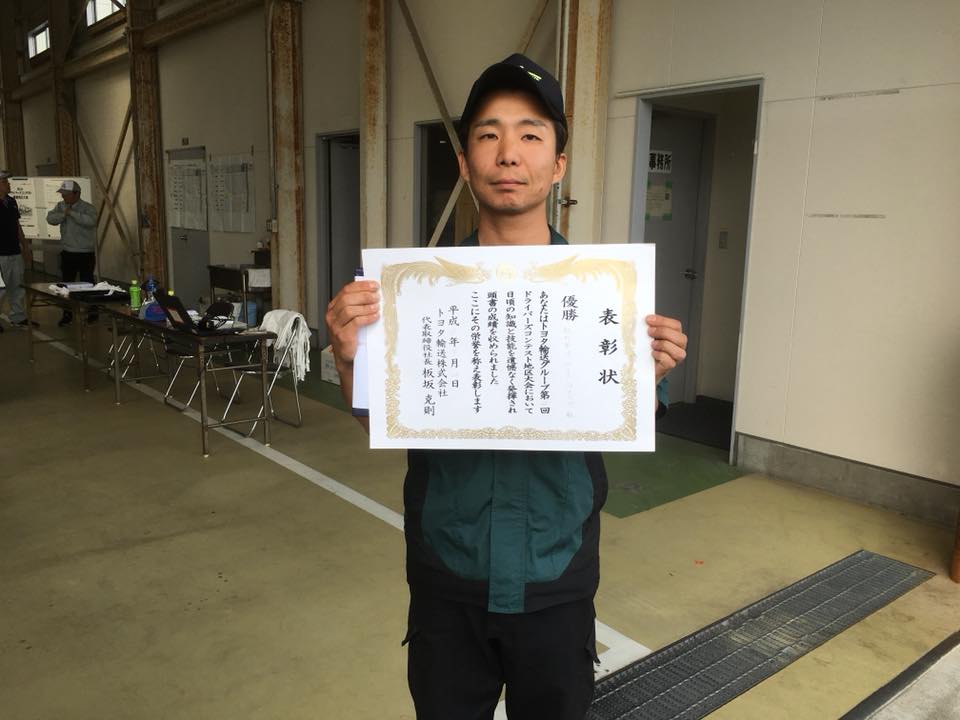 表彰状
優勝
あなたはトヨタ輸送グループ第一回
ドライバーズコンテスト地区大会において
日頃の知識と技能を遺憾なく発揮され
頭書の成績を収められました
ここにその栄誉を称え表彰します
平成　年　月　日
トヨタ輸送株式会社
代表取締役社長 板坂 克則
事務所